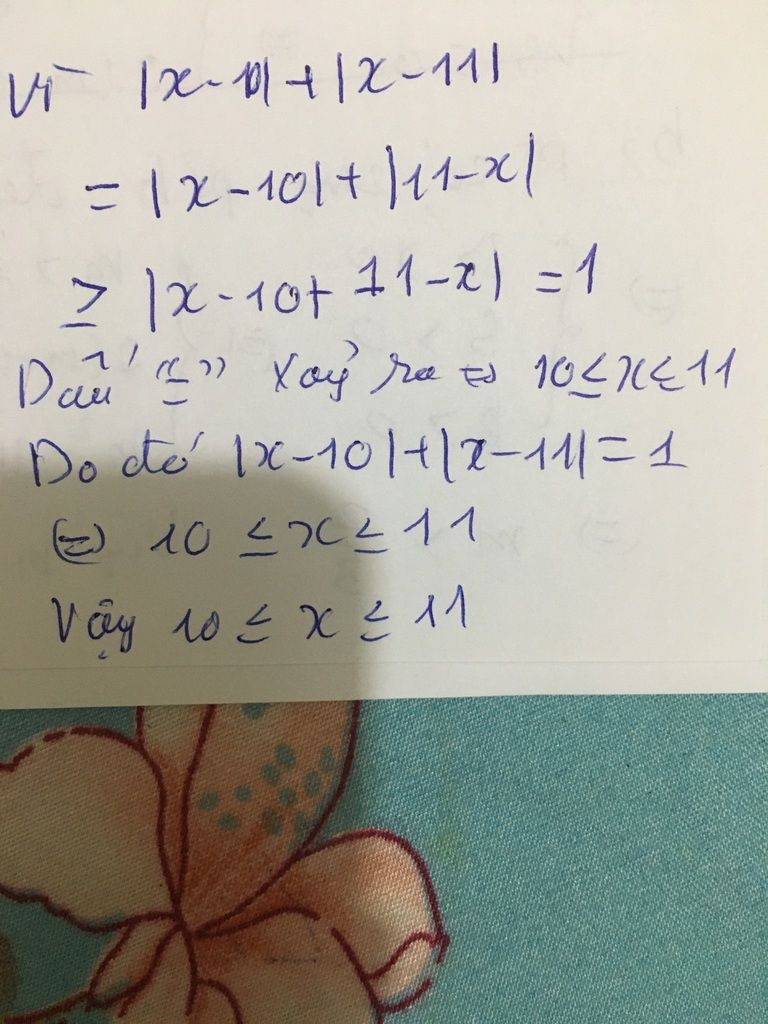 Vì |x-10|+|x-11|
= |x-10|+|11-x|
≥ |x-10+11-x| =1
Dấu "=" xảy ra ⇔ 10≤x≤11
Do đó |x-10|+|x-11|=1
⇔ 10 ≤x≤ 11
Vậy 10 ≤ x ≤ 11